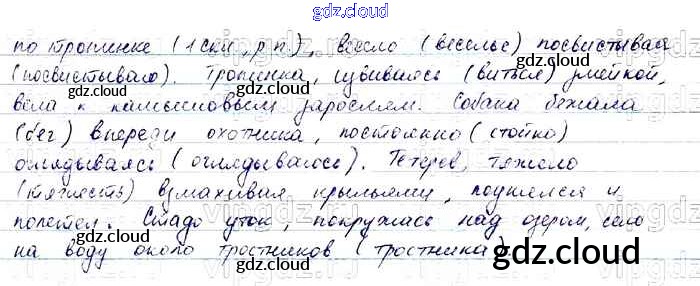 gdz.cloud
по тропинке (1 скл., р.п), весело (веселье) посвистывая
(посвистываю). Тропинка, извиваясь (виться) змейкой,
вела к камышовым зарослям. Собака бежала
(бег) впереди охотника, постоянно (стойко)
оглядываясь (оглядываюсь). Тетерев, тяжело
(тяжесть) взмахивая крыльями, поднялся и
полетел. Стадо уток, покружась над озером, село
на воду около тростников (тростника)
gdz.cloud